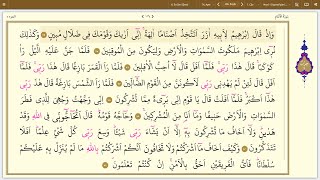 وَإِذْ قَالَ إِبْرَٰهِيمُ لِأَبِيهِ ءَازَرَ أَتَتَّخِذُ أَصْنَامًا ءَالِهَةً إِنِّىٓ أَرَىٰكَ وَقَوْمَكَ فِى ضَلَٰلٍ مُّبِينٍ وَكَذَٰلِكَ
نُرِىٓ إِبْرَٰهِيمَ مَلَكُوتَ السَّمَٰوَٰتِ وَالْأَرْضِ وَلِيَكُونَ مِنَ الْمُوقِنِينَ فَلَمَّا جَنَّ عَلَيْهِ الَّيْلُ رَءَا
كَوْكَبًا قَالَ هَٰذَا رَبِّى فَلَمَّآ أَفَلَ قَالَ لَآ أُحِبُّ الْءَافِلِينَ فَلَمَّا رَءَا الْقَمَرَ بَازِغًا قَالَ هَٰذَا رَبِّى
فَلَمَّآ أَفَلَ قَالَ لَئِن لَّمْ يَهْدِنِى رَبِّى لَأَكُونَنَّ مِنَ الْقَوْمِ الضَّآلِّينَ فَلَمَّا رَءَا الشَّمْسَ بَازِغَةً قَالَ هَٰذَا رَبِّى
هَٰذَآ أَكْبَرُ فَلَمَّآ أَفَلَتْ قَالَ يَٰقَوْمِ إِنِّى بَرِىٓءٌ مِّمَّا تُشْرِكُونَ إِنِّى وَجَّهْتُ وَجْهِىَ لِلَّذِى فَطَرَ
السَّمَٰوَٰتِ وَالْأَرْضَ حَنِيفًا وَمَآ أَنَا۠ مِنَ الْمُشْرِكِينَ وَحَآجَّهُۥ قَوْمُهُۥ قَالَ أَتُحَٰٓجُّوٓنِّى فِى اللَّهِ وَقَدْ
هَدَىٰنِ وَلَآ أَخَافُ مَا تُشْرِكُونَ بِهِۦٓ إِلَّآ أَن يَشَآءَ رَبِّى شَيْـًٔا وَسِعَ رَبِّى كُلَّ شَىْءٍ عِلْمًا أَفَلَا
تَتَذَكَّرُونَ وَكَيْفَ أَخَافُ مَآ أَشْرَكْتُمْ وَلَا تَخَافُونَ أَنَّكُمْ أَشْرَكْتُم بِاللَّهِ مَا لَمْ يُنَزِّلْ بِهِۦ عَلَيْكُمْ
سُلْطَٰنًا فَأَىُّ الْفَرِيقَيْنِ أَحَقُّ بِالْأَمْنِ إِن كُنتُمْ تَعْلَمُونَ